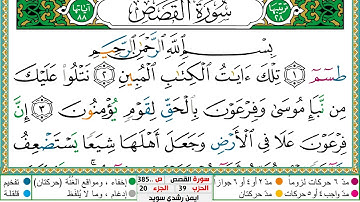 سُورَةُ القَصَصِ
ترتيبها ٢٨
آياتها ٨٨
بِسْمِ اللَّهِ الرَّحْمَٰنِ الرَّحِيمِ
طسٓمٓ ١ تِلْكَ ءَايَٰتُ الْكِتَٰبِ الْمُبِينِ ٢ نَتْلُوا۟ عَلَيْكَ
مِن نَّبَإِ مُوسَىٰ وَفِرْعَوْنَ بِالْحَقِّ لِقَوْمٍ يُؤْمِنُونَ ٣ إِنَّ
فِرْعَوْنَ عَلَا فِي الْأَرْضِ وَجَعَلَ أَهْلَهَا شِيَعًا يَسْتَضْعِفُ
مد ٦ حركات لزوما مد ٢ أو ٤ أو ٦ جوازا
مد واجب ٤ أو ٥ حركات مد حركتان
سورة القصص ص ..385
الحزب 39 الجزء 20
ايمن رشدي سويد
إخفاء، ومواقع الغنة (حركتان) تفخيم
إدغام، وما لا يلفظ قلقلة